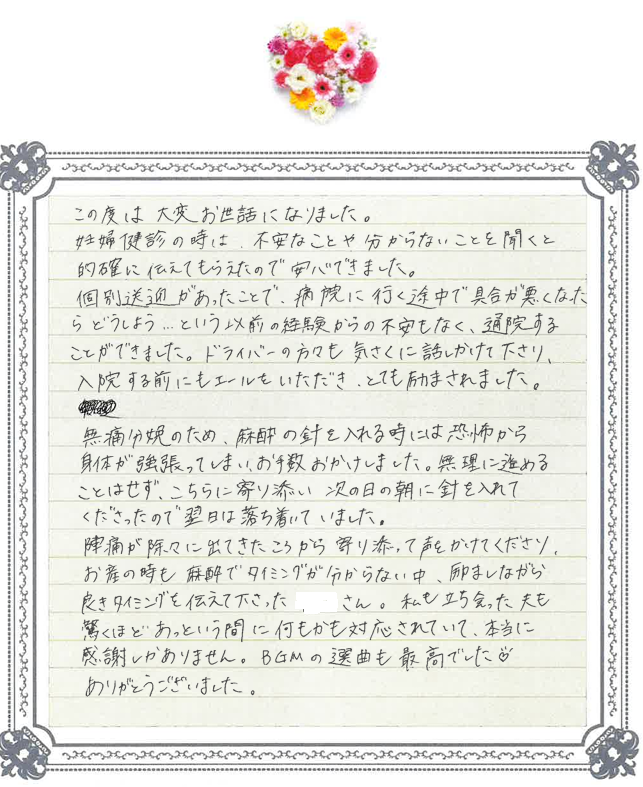 この度は大変お世話になりました。
妊婦健診の時は、不安なことや分からないことを聞くと
的確に伝えてもらえたので安心できました。
個別送迎があったことで、病院に行く途中で具合が悪くなった
らどうしよう…という以前の経験からの不安もなく、通院する
ことができました。ドライバーの方々も気さくに話しかけて下さり、
入院する前にもエールをいただき、とても励まされました。
無痛分娩のため、麻酔の針を入れる時には恐怖から
身体が強張ってしまい、お手数おかけしました。無理に進める
ことはせず、こちらに寄り添い次の日の朝に針を入れて
くださったので翌日は落ち着いていました。
陣痛が徐々に出てきたころから寄り添って声をかけてくださり、
お産の時も麻酔でタイミングが分からない中、励ましながら
良きタイミングを伝えて下さった さん。私も立ち会った夫も
驚くほどあっという間に何もかも対応されていて、本当に
感謝しかありません。BGMの選曲も最高でした
ありがとうございました。